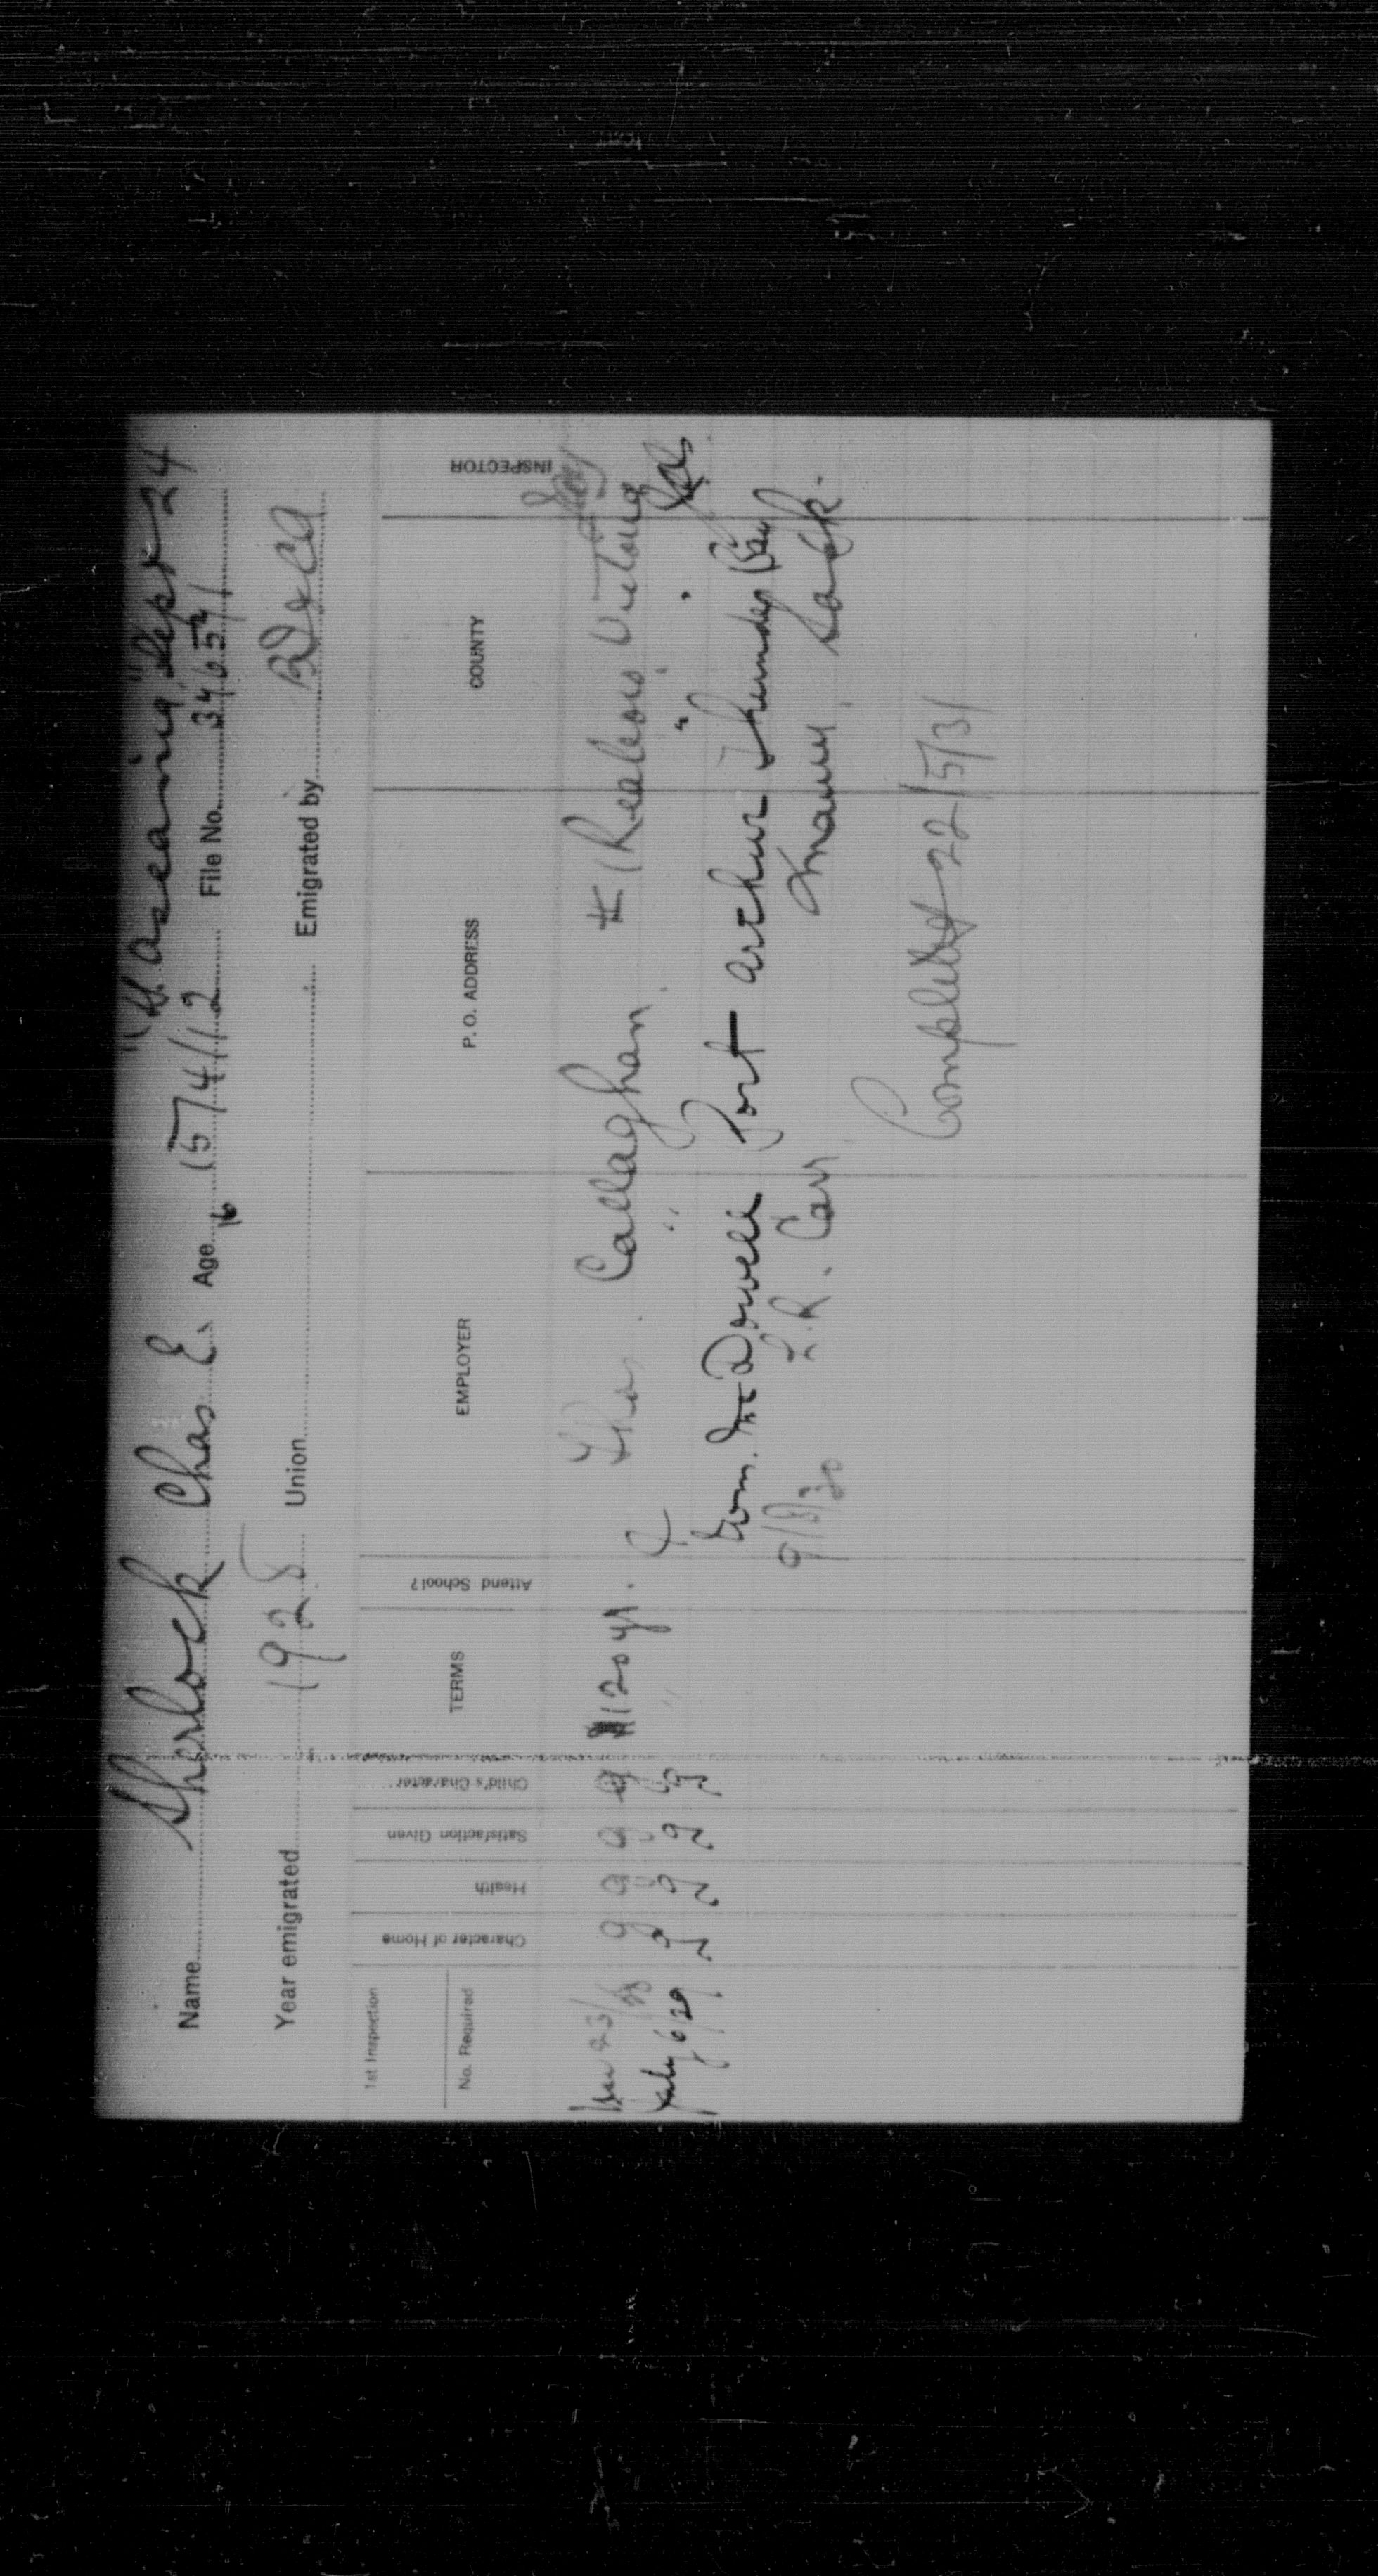 "Ausonia" Sept 24
Name Sherlock Chas E. Age 16 15/4/12 File No. 34651
Year emigrated 1928 Union Emigrated by
1st Inspection
No. Required
Character of Home
Health
Satisfaction Given
Child's Character
TERMS
Attend School?
EMPLOYER
P. O. ADDRESS
COUNTY
INSPECTOR
23/28 g g g g $120 yr. Thos. Callaghan # Reaboro Victoria
July 6/29 g g g g " " " "
Wm. McDowell Port Arthur Thunder Bay
9/8/30 L. R. Carr Sask.
Completed 22/5/31